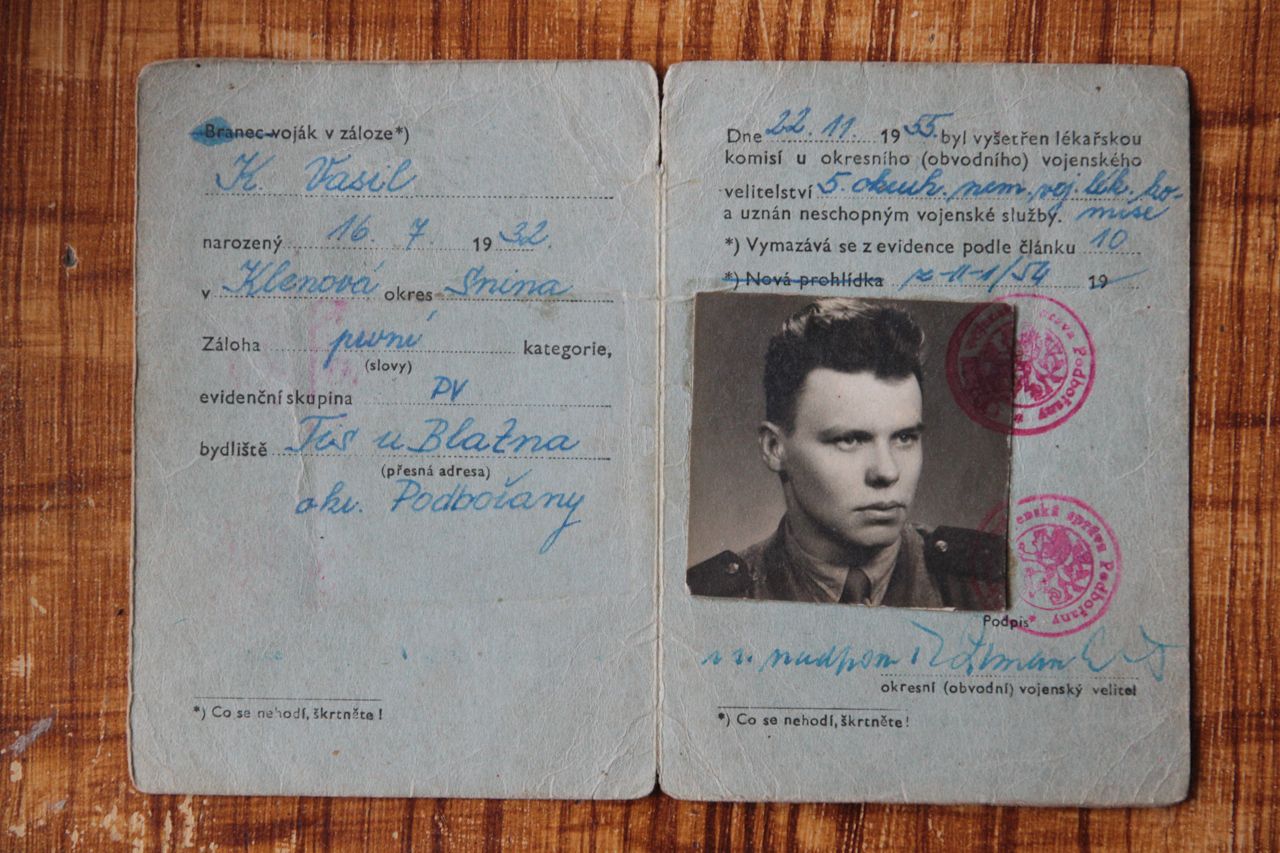 Branec-voják v záloze*)
K. Vasil
narozený 16. 7. 1932.
v Klenová okres Snina
Záloha první kategorie,
(slovy)
evidenční skupina PV
bydliště Tis u Blažna
(přesná adresa)
okr. Podbořany
*) Co se nehodí, škrtněte!
Dne 22. 11. 1955. byl vyšetřen lékařskou
komisí u okresního (obvodního) vojenského
velitelství 5. okruh. nem. voj. lék. ko-
a uznán neschopným vojenské služby. mise
*) Vymazává se z evidence podle článku 10
*) Nová prohlídka z-II-1/54 19
správa Podbořany
enská správa Podbořany
Podpis
okresní (obvodní) vojenský velitel
*) Co se nehodí, škrtněte!